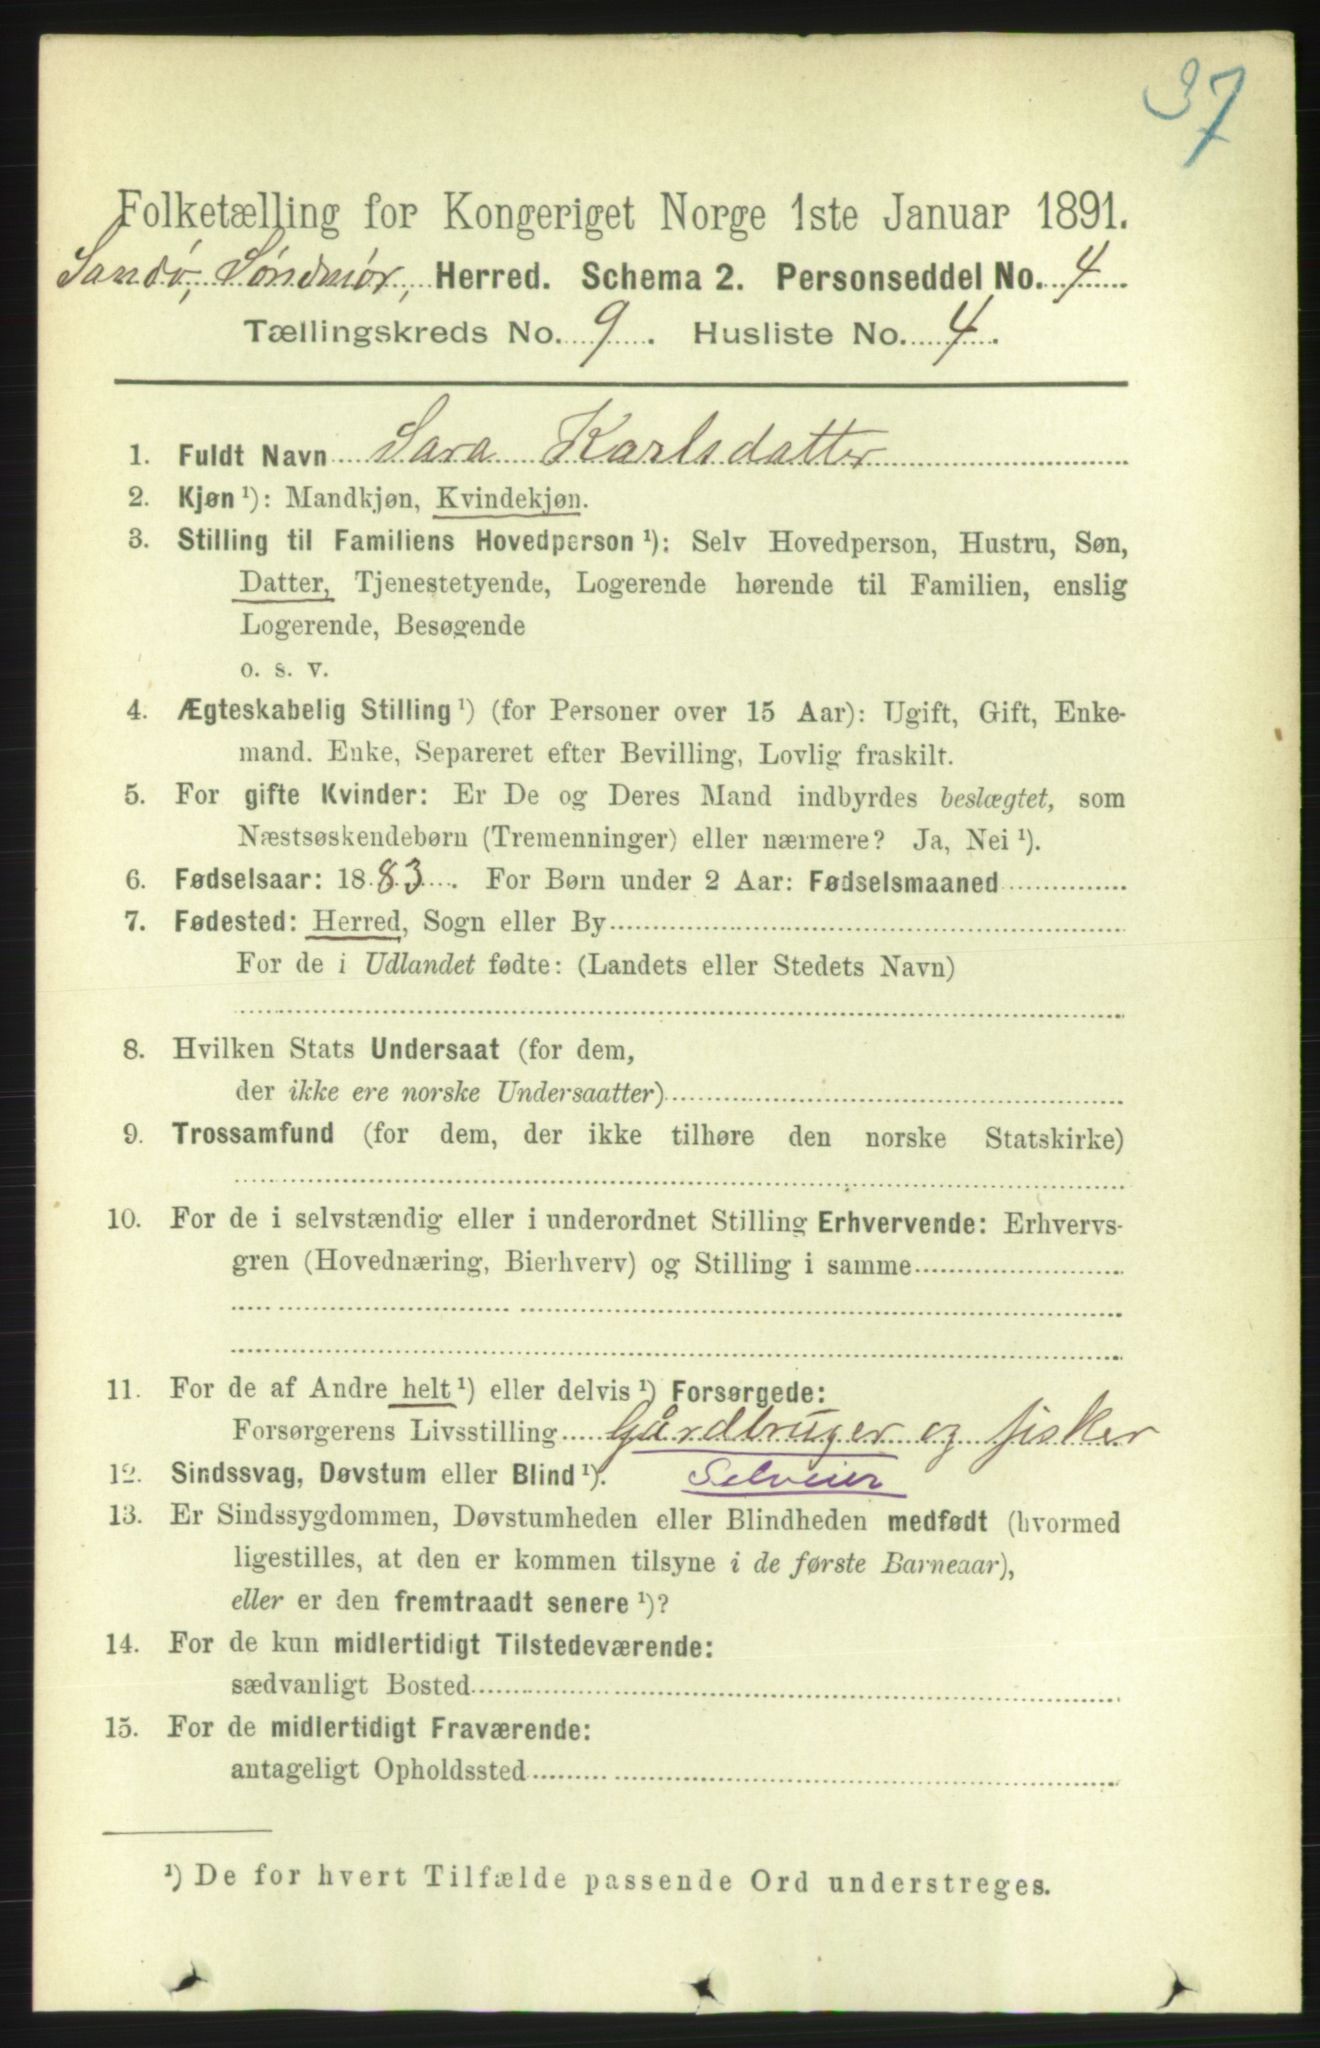 37
Folketælling for Kongeriget Norge 1ste Januar 1891.
Sandø, Søndmør, Herred. Schema 2. Personseddel No. 4
Tællingskreds No. 9. Husliste No. 4.
1. Fuldt Navn Sara Karlsdatter
2. Kjøn ¹): Mandkjøn, Kvindekjøn.
3. Stilling til Familiens Hovedperson ¹): Selv Hovedperson, Hustru, Søn,
Datter, Tjenestetyende, Logerende hørende til Familien, enslig
Logerende, Besøgende
o. s. v.
4. Ægteskabelig Stilling ¹) (for Personer over 15 Aar): Ugift, Gift, Enke-
mand. Enke, Separeret efter Bevilling, Lovlig fraskilt.
5. For gifte Kvinder: Er De og Deres Mand indbyrdes beslægtet, som
Næstsøskendebørn (Tremenninger) eller nærmere? Ja, Nei ¹).
6. Fødselsaar: 1883. For Børn under 2 Aar: Fødselsmaaned
7. Fødested: Herred, Sogn eller By
For de i Udlandet fødte: (Landets eller Stedets Navn)
8. Hvilken Stats Undersaat (for dem,
der ikke ere norske Undersaatter)
9. Trossamfund (for dem, der ikke tilhøre den norske Statskirke)
10. For de i selvstændig eller i underordnet Stilling Erhvervende: Erhvervs-
gren (Hovednæring, Bierhverv) og Stilling i samme
11. For de af Andre helt ¹) eller delvis ¹) Forsørgede:
Forsørgerens Livsstilling Gårdbruger og fisker
12. Sindssvag, Døvstum eller Blind ¹). Selveier
13. Er Sindssygdommen, Døvstumheden eller Blindheden medfødt (hvormed
ligestilles, at den er kommen tilsyne i de første Barneaar),
eller er den fremtraadt senere ¹)?
14. For de kun midlertidigt Tilstedeværende:
sædvanligt Bosted
15. For de midlertidigt Fraværende:
antageligt Opholdssted
¹) De for hvert Tilfælde passende Ord understreges.